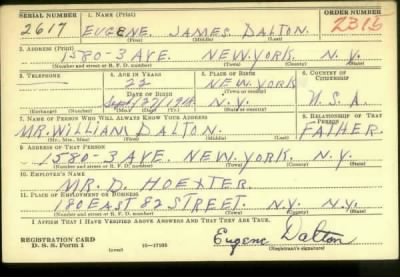 SERIAL NUMBER 1. NAME (Print) ORDER NUMBER
2617 EUGENE JAMES DALTON. 2316
(First) (Middle) (Last)
2. ADDRESS (Print)
1580-3 AVE. NEW YORK. N.Y.
(Number and street or R. F. D. number) (Town) (County) (State)
3. TELEPHONE 4. AGE IN YEARS 5. PLACE OF BIRTH 6. COUNTRY OF CITIZENSHIP
22 NEW YORK
DATE OF BIRTH (Town or county)
Sept 27/1918 N.Y. U.S.A.
(Exchange) (Number) (Mo.) (Day) (Yr.) (State or country)
7. NAME OF PERSON WHO WILL ALWAYS KNOW YOUR ADDRESS 8. RELATIONSHIP OF THAT PERSON
MR. WILLIAM DALTON. FATHER.
(Mr., Mrs., Miss) (First) (Middle) (Last)
9. ADDRESS OF THAT PERSON
1580-3 AVE. NEW YORK. N.Y.
(Number and street or R. F. D. number) (Town) (County) (State)
10. EMPLOYER'S NAME
MR. D. HOEXTER.
11. PLACE OF EMPLOYMENT OR BUSINESS
180 EAST 82 STREET. N.Y. N.Y.
(Number and street or R. F. D. number) (Town) (County) (State)
I AFFIRM THAT I HAVE VERIFIED ABOVE ANSWERS AND THAT THEY ARE TRUE.
REGISTRATION CARD Eugene Dalton
D. S. S. Form 1 (over) 16—17105 (Registrant's signature)